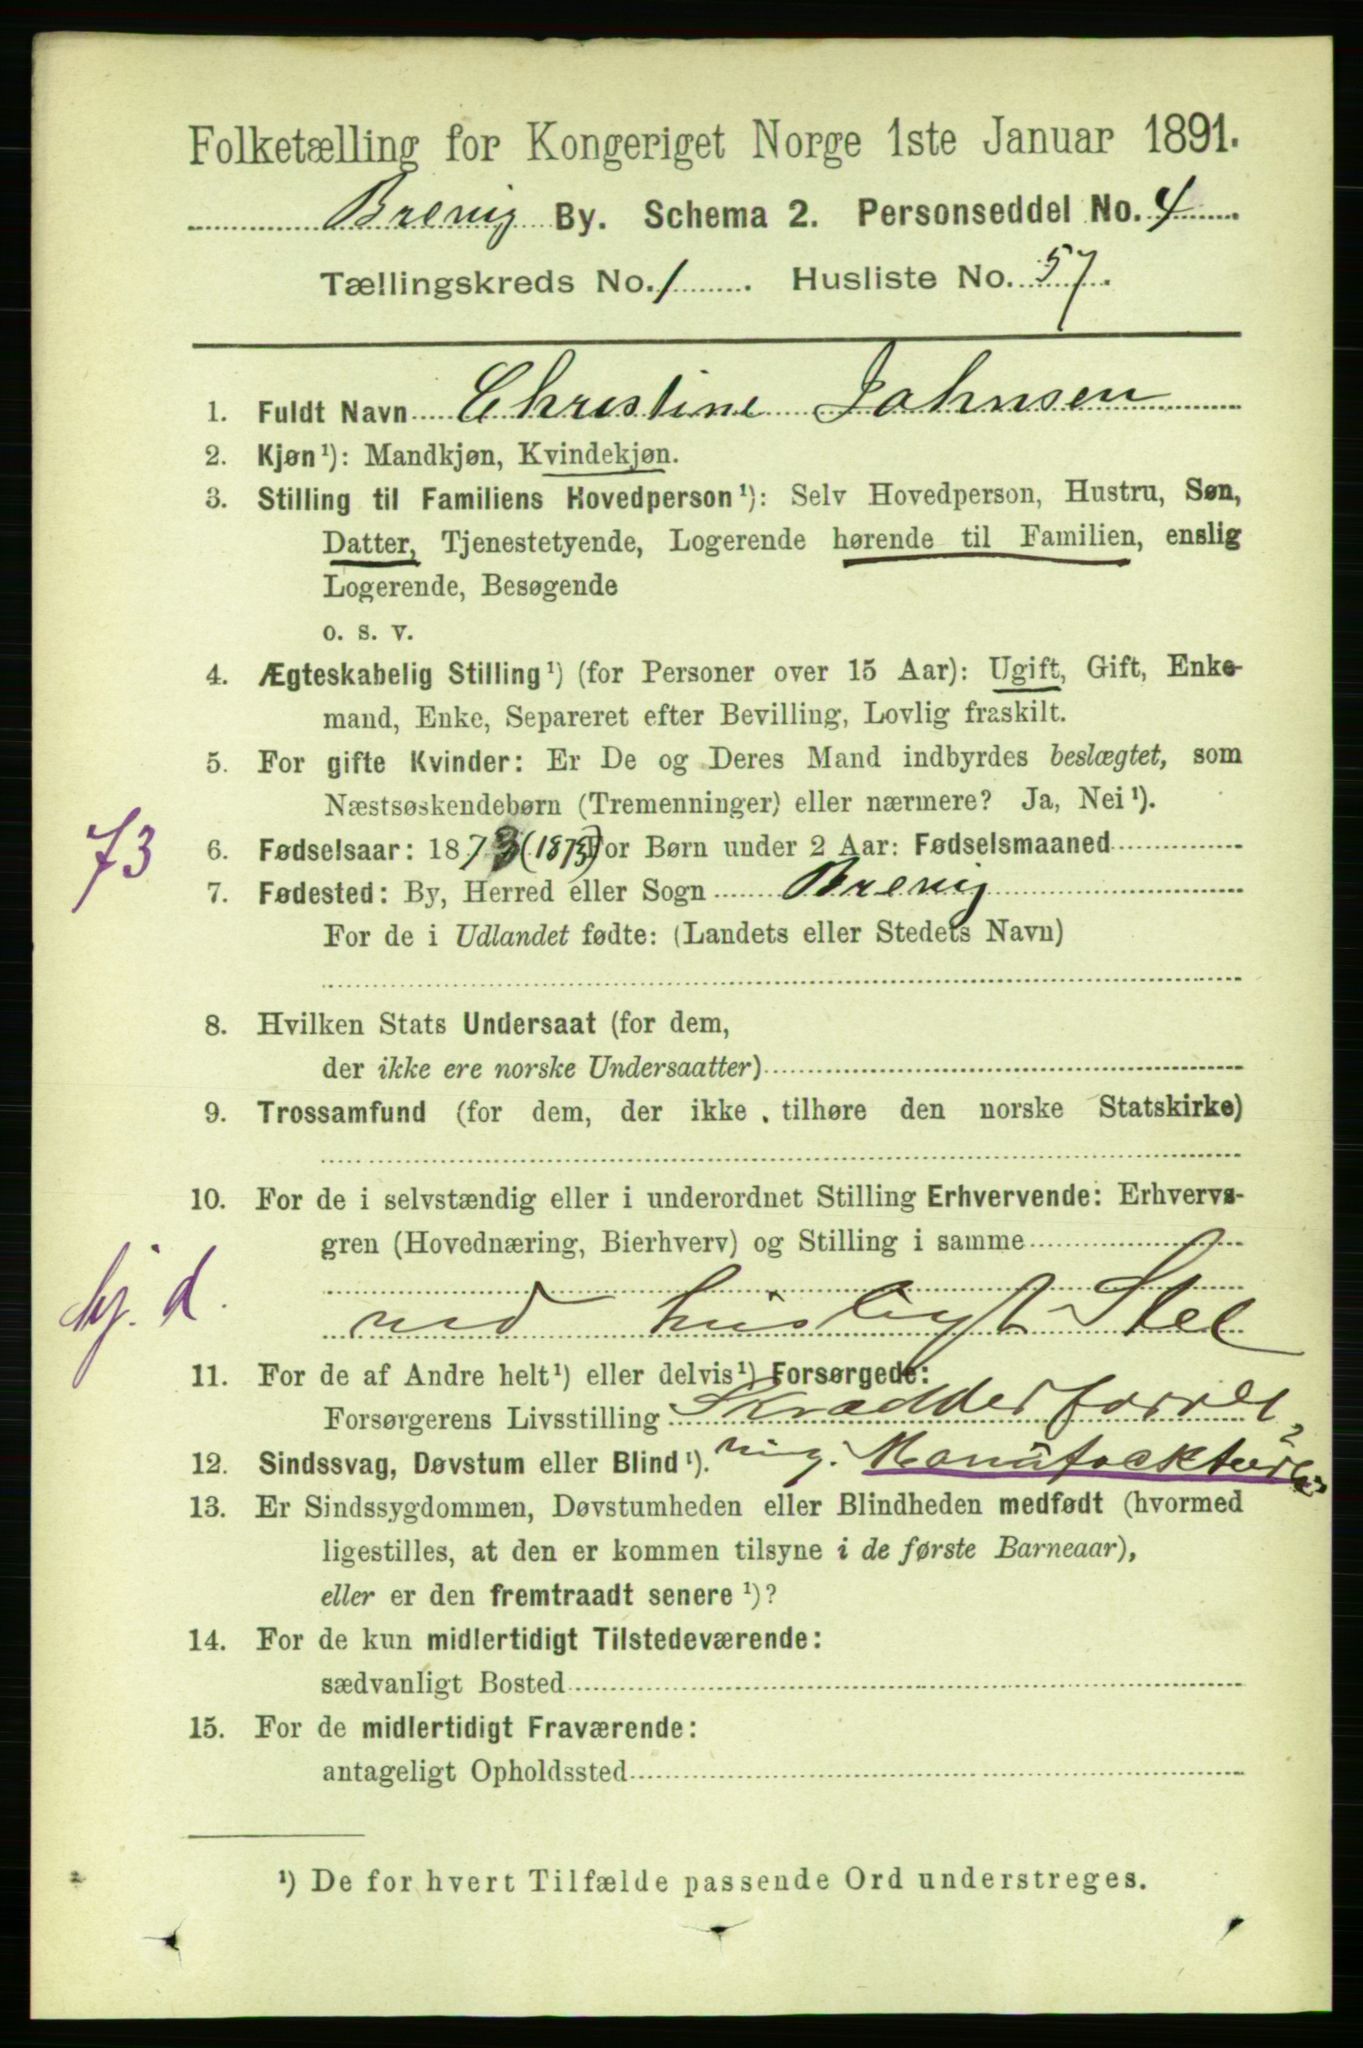 Folketælling for Kongeriget Norge 1ste Januar 1891.
Brevig By. Schema 2. Personseddel No. 4
Tællingskreds No. 1. Husliste No. 57.
1. Fuldt Navn Christine Johnsen
2. Kjøn¹): Mandkjøn, Kvindekjøn.
3. Stilling til Familiens Hovedperson¹): Selv Hovedperson, Hustru, Søn,
Datter, Tjenestetyende, Logerende hørende til Familien, enslig
Logerende, Besøgende
o. s. v.
4. Ægteskabelig Stilling¹) (for Personer over 15 Aar): Ugift, Gift, Enke-
mand, Enke, Separeret efter Bevilling, Lovlig fraskilt.
5. For gifte Kvinder: Er De og Deres Mand indbyrdes beslægtet, som
Næstsøskendebørn (Tremenninger) eller nærmere? Ja, Nei¹).
73
6. Fødselsaar: 1873 (1873) For Børn under 2 Aar: Fødselsmaaned
7. Fødested: By, Herred eller Sogn Brevig
For de i Udlandet fødte: (Landets eller Stedets Navn)
8. Hvilken Stats Undersaat (for dem,
der ikke ere norske Undersaatter)
9. Trossamfund (for dem, der ikke tilhøre den norske Statskirke)
10. For de i selvstændig eller i underordnet Stilling Erhvervende: Erhvervs-
gren (Hovednæring, Bierhverv) og Stilling i samme
hj. d.
ved husligt Stel
11. For de af Andre helt¹) eller delvis¹) Forsørgede:
Forsørgerens Livsstilling Skrædderforret
12. Sindssvag, Døvstum eller Blind¹). ning.
13. Er Sindssygdommen, Døvstumheden eller Blindheden medfødt (hvormed
ligestilles, at den er kommen tilsyne i de første Barneaar),
eller er den fremtraadt senere ¹)?
14. For de kun midlertidigt Tilstedeværende:
sædvanligt Bosted
15. For de midlertidigt Fraværende:
antageligt Opholdssted
¹) De for hvert Tilfælde passende Ord understreges.